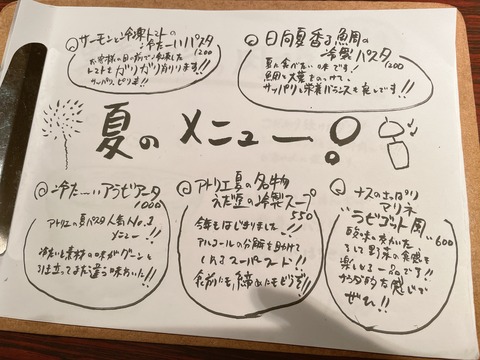 サーモンと冷凍トマトの
冷たーいパスタ
1200
お客様に目の前で冷凍した
トマトをガリガリかけます!!
サッパリ、ピリ辛!!
日向夏香る鯛の
冷製パスタ
1200
夏に食べたい味です!
鯛と大葉をのっけて、
サッパリと栄養バランスも良しです!!
夏のメニュー!
冷た〜いアラビアータ
1000
アトリエの夏パスタ人気No.1
メニュー!!
冷たい素材の味がグーンと
引き立ってまた違う味わいだ!!
アトリエ夏の名物
えだ豆の冷製スープ
550
今年もはじまりました!!
アルコールの分解を助けて
くれるスーパーフード!!
食前にも、締めにもどうぞ!!
ナスのさっぱり
マリネ
"ラビゴット風"
600
酸味の効いた
そして野菜の食感も
楽しめる一品です!!
サラダ的な感じで
ぜひ!!